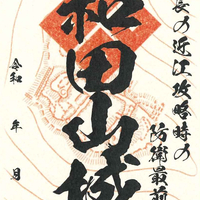 長の近江攻略時の
防衛最前
和田山城
令和
年
月